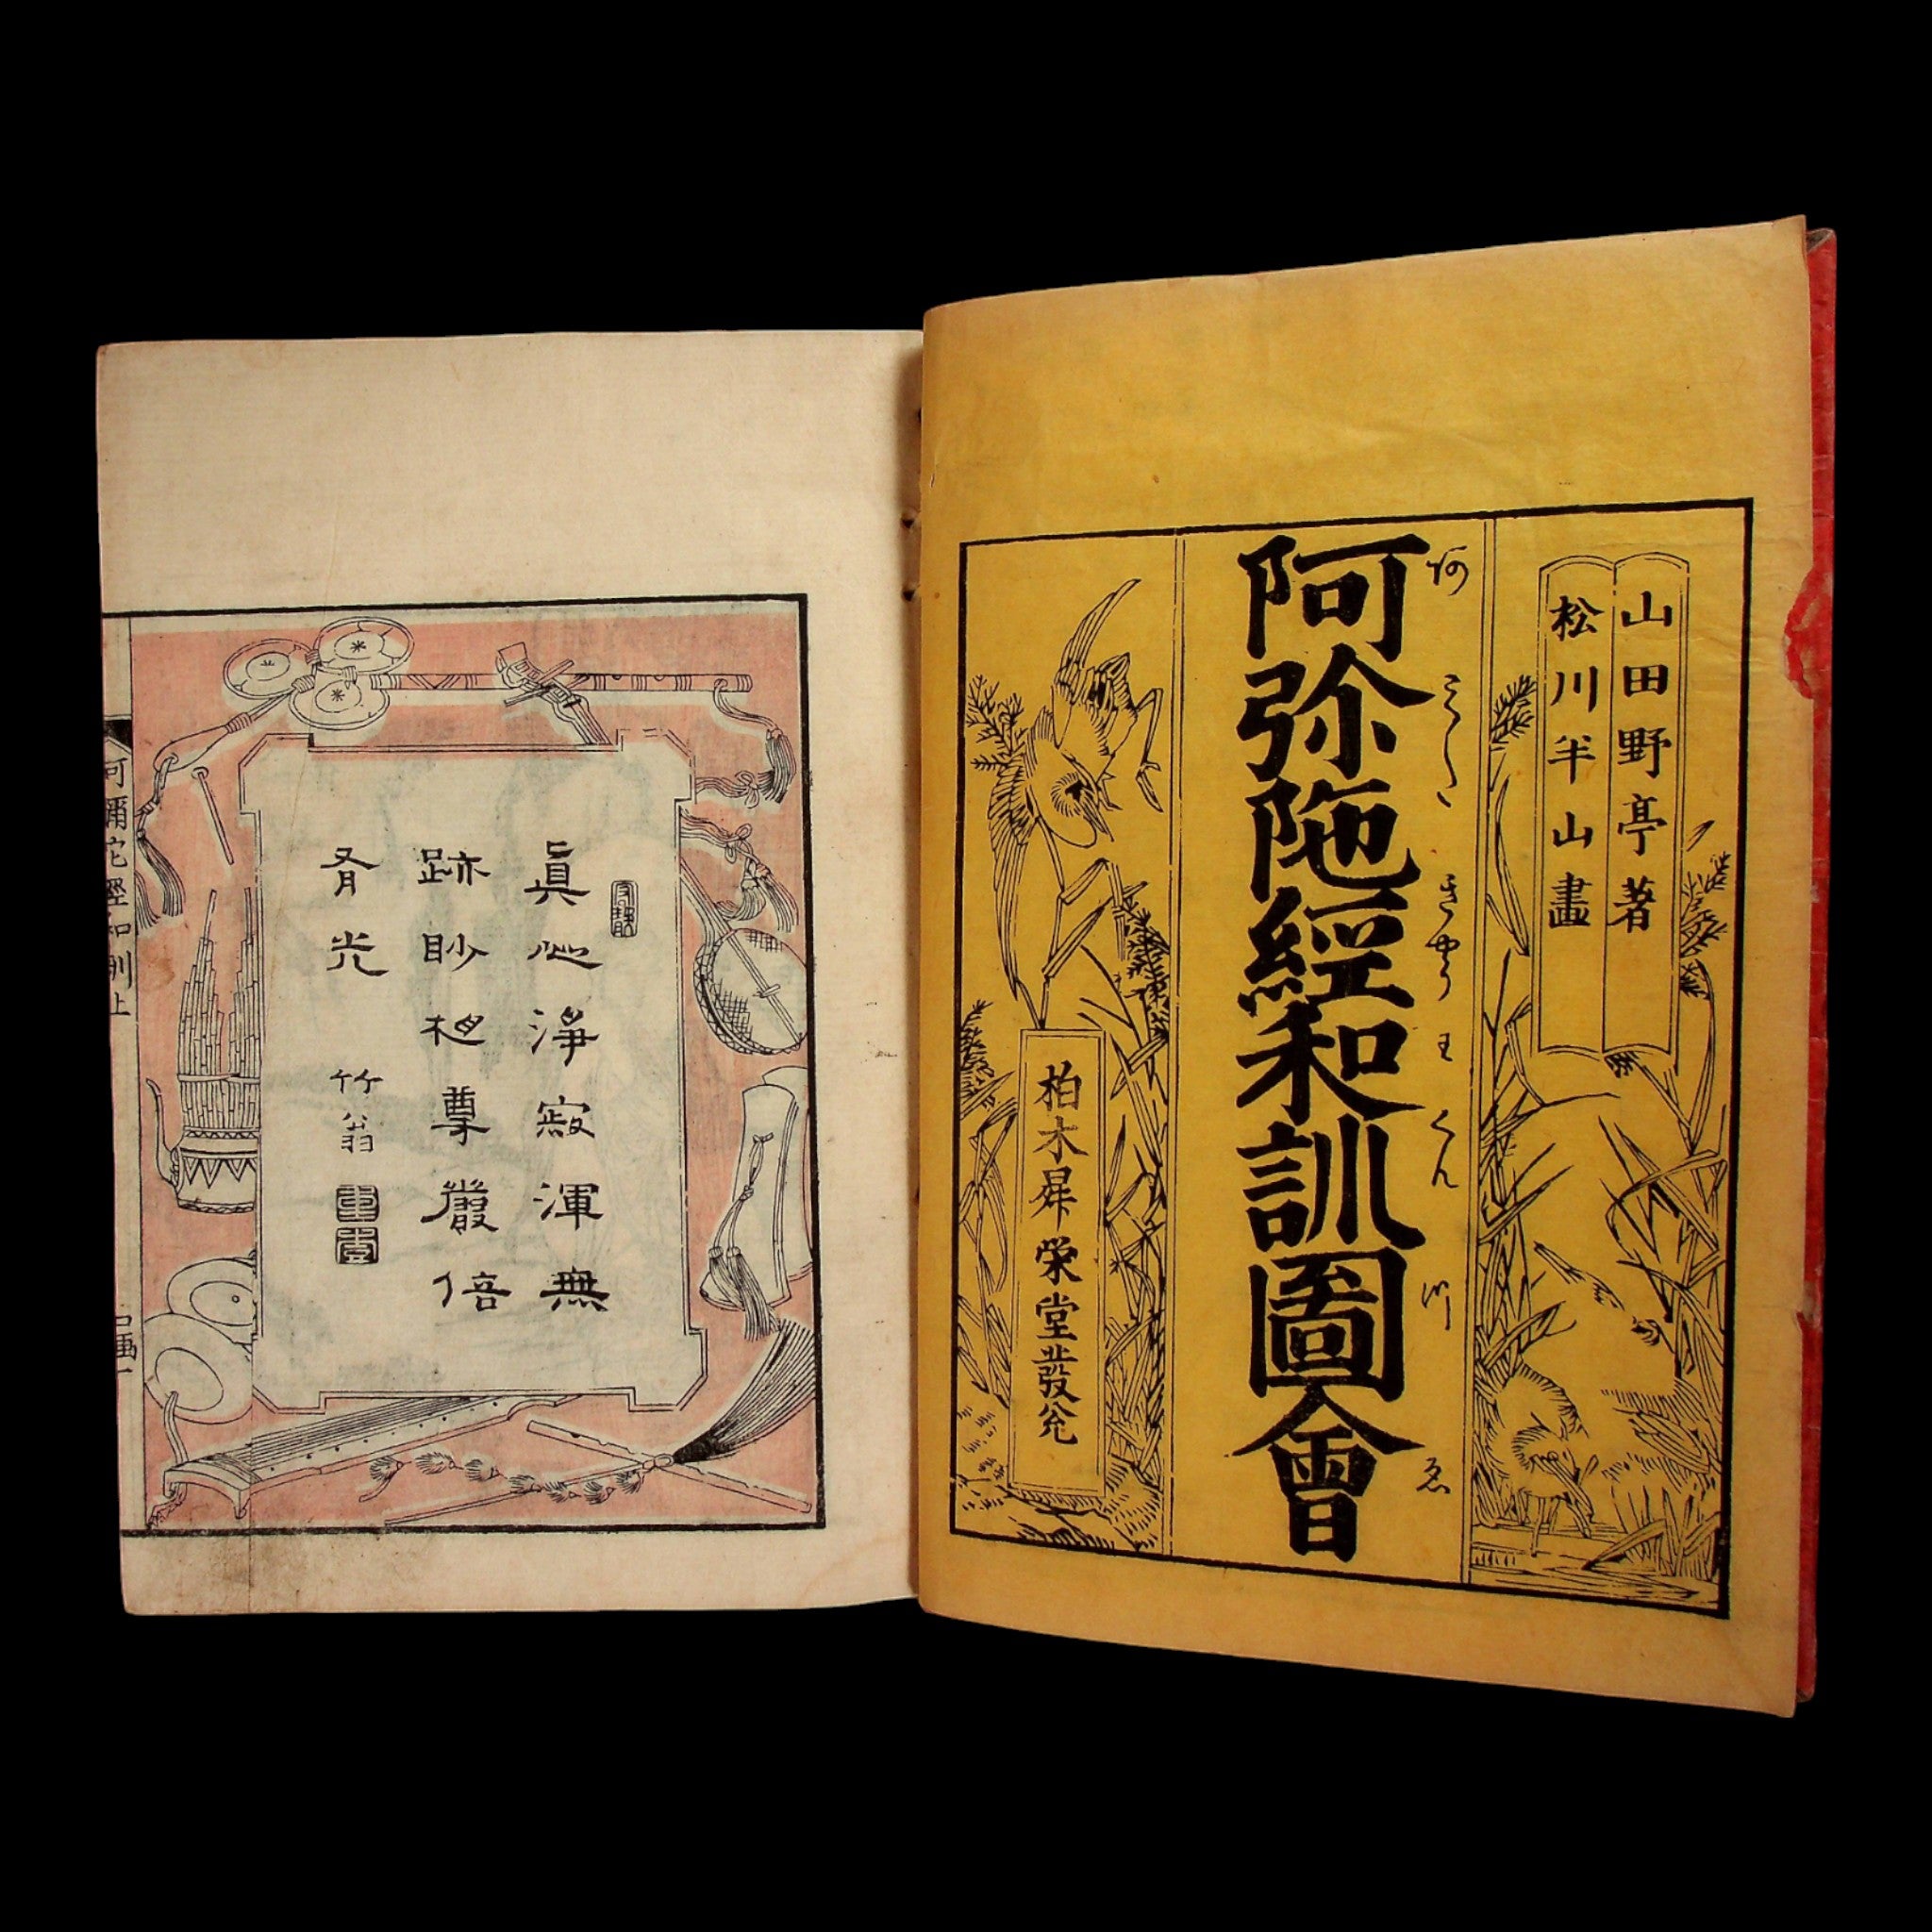 山田野亭著
松川半山畫
阿弥陁經和訓圖會
阿みだきやうわくんづゑ
柏木犀栄堂發兌
眞心淨寂渾無
跡眇相尊嚴倍
有光 竹翁
阿彌陀經和訓上